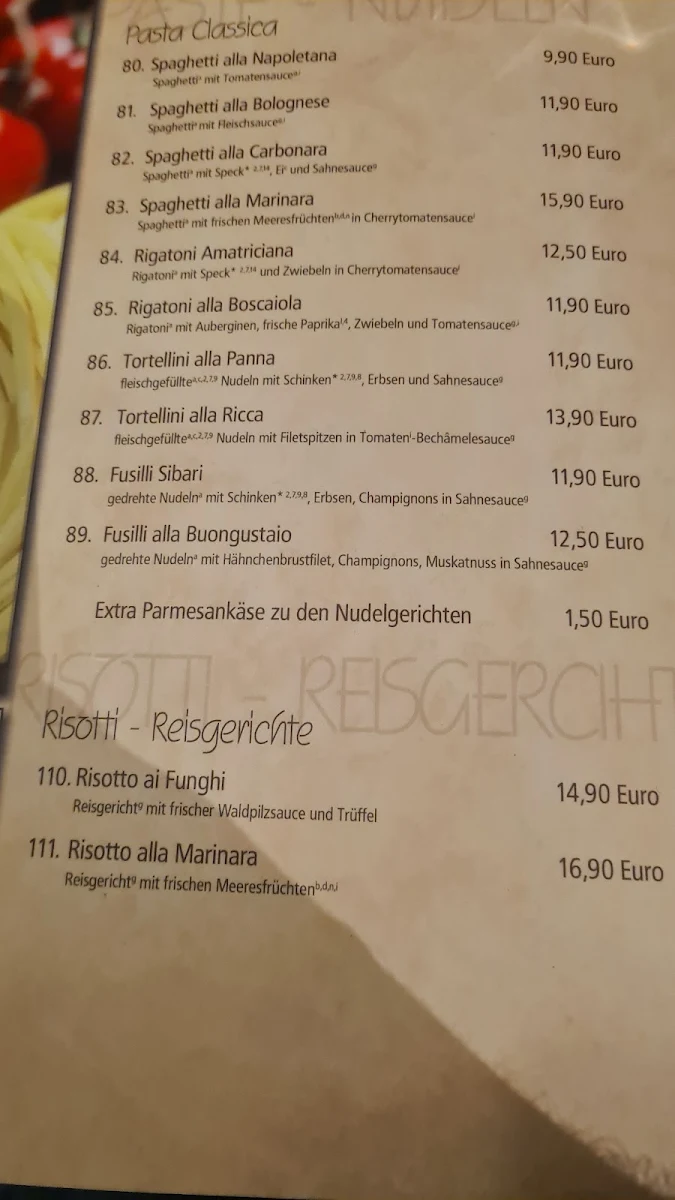 PASTE - NUDELN
Pasta Classica
80. Spaghetti alla Napoletana 9,90 Euro
Spaghettiᵃ mit Tomatensauce
81. Spaghetti alla Bolognese 11,90 Euro
Spaghettiᵃ mit Fleischsauce
82. Spaghetti alla Carbonara 11,90 Euro
Spaghettiᵃ mit Speck* ²,⁷,¹⁴, Ei und Sahnesauceᵍ
83. Spaghetti alla Marinara 15,90 Euro
Spaghettiᵃ mit frischen Meeresfrüchten in Cherrytomatensauce
84. Rigatoni Amatriciana 12,50 Euro
Rigatoniᵃ mit Speck* ²,⁷,¹⁴ und Zwiebeln in Cherrytomatensauce
85. Rigatoni alla Boscaiola 11,90 Euro
Rigatoniᵃ mit Auberginen, frische Paprika, Zwiebeln und Tomatensauce
86. Tortellini alla Panna 11,90 Euro
fleischgefüllteᵃ,ᶜ,²,⁷,⁹ Nudeln mit Schinken* ²,⁷,⁹,⁸, Erbsen und Sahnesauceᵍ
87. Tortellini alla Ricca 13,90 Euro
fleischgefüllteᵃ,ᶜ,²,⁷,⁹ Nudeln mit Filetspitzen in Tomatenⁱ-Bechâmelesauceᵍ
88. Fusilli Sibari 11,90 Euro
gedrehte Nudelnᵃ mit Schinken* ²,⁷,⁹,⁸, Erbsen, Champignons in Sahnesauceᵍ
89. Fusilli alla Buongustaio 12,50 Euro
gedrehte Nudelnᵃ mit Hähnchenbrustfilet, Champignons, Muskatnuss in Sahnesauceᵍ
Extra Parmesankäse zu den Nudelgerichten 1,50 Euro
RISOTTI - REISGERCIHT
Risotti - Reisgerichte
110. Risotto ai Funghi 14,90 Euro
Reisgerichtᵍ mit frischer Waldpilzsauce und Trüffel
111. Risotto alla Marinara 16,90 Euro
Reisgerichtᵍ mit frischen Meeresfrüchtenᵇ,ᵈ,ⁿ,ⁱ